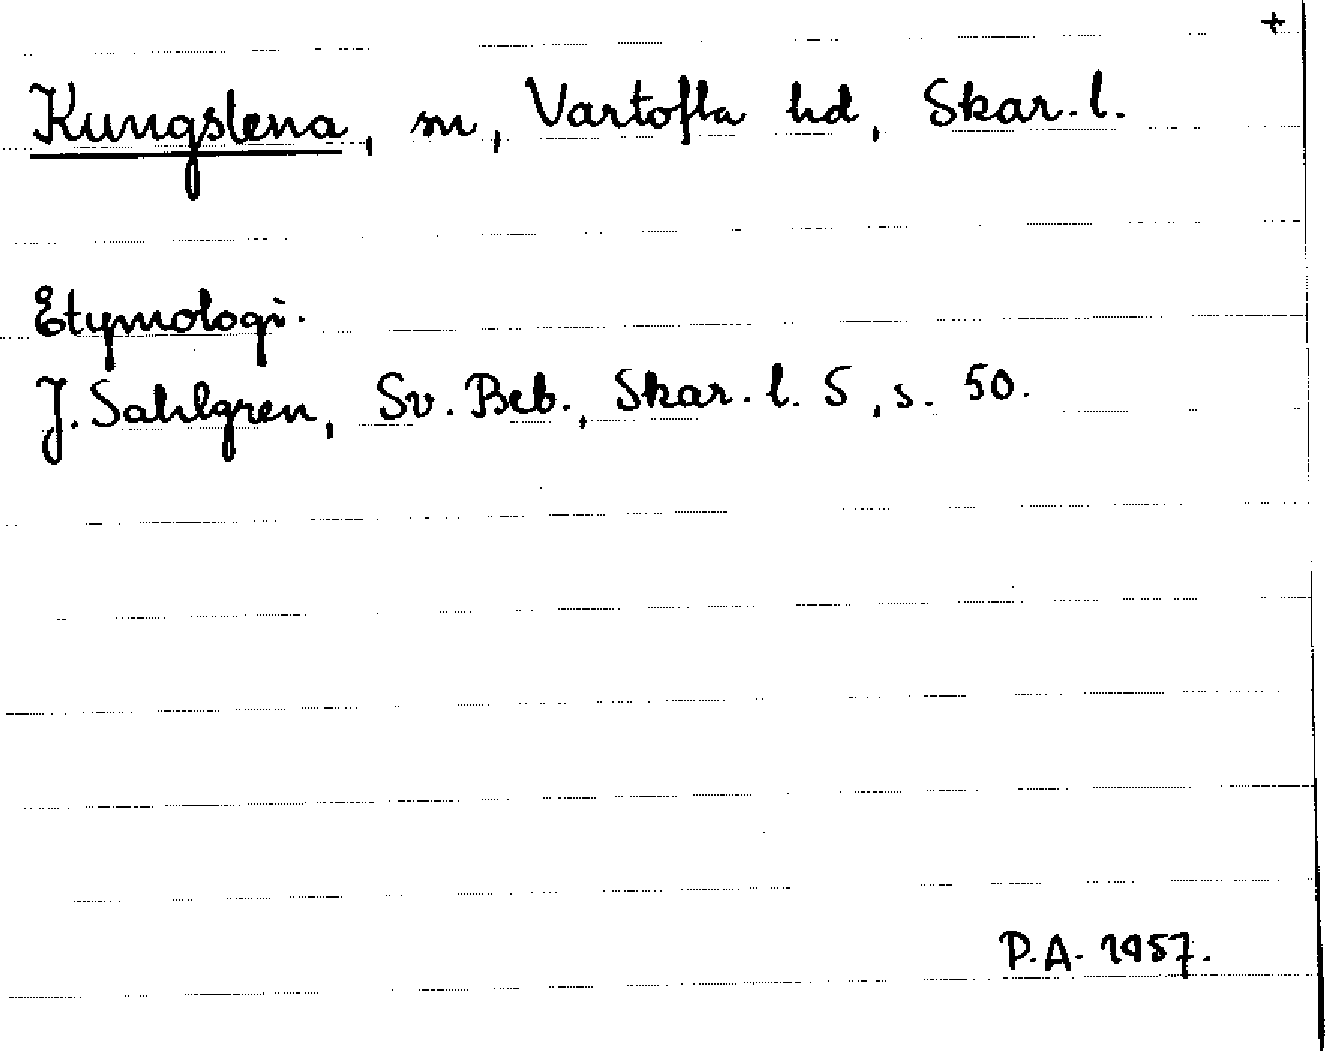 +
Kungslena, sn, Vartofta hd, Skar. l.
Etymologi.
J. Sahlgren, Sv. Beb., Skar. l. 5, s. 50.
P.A. 1957.